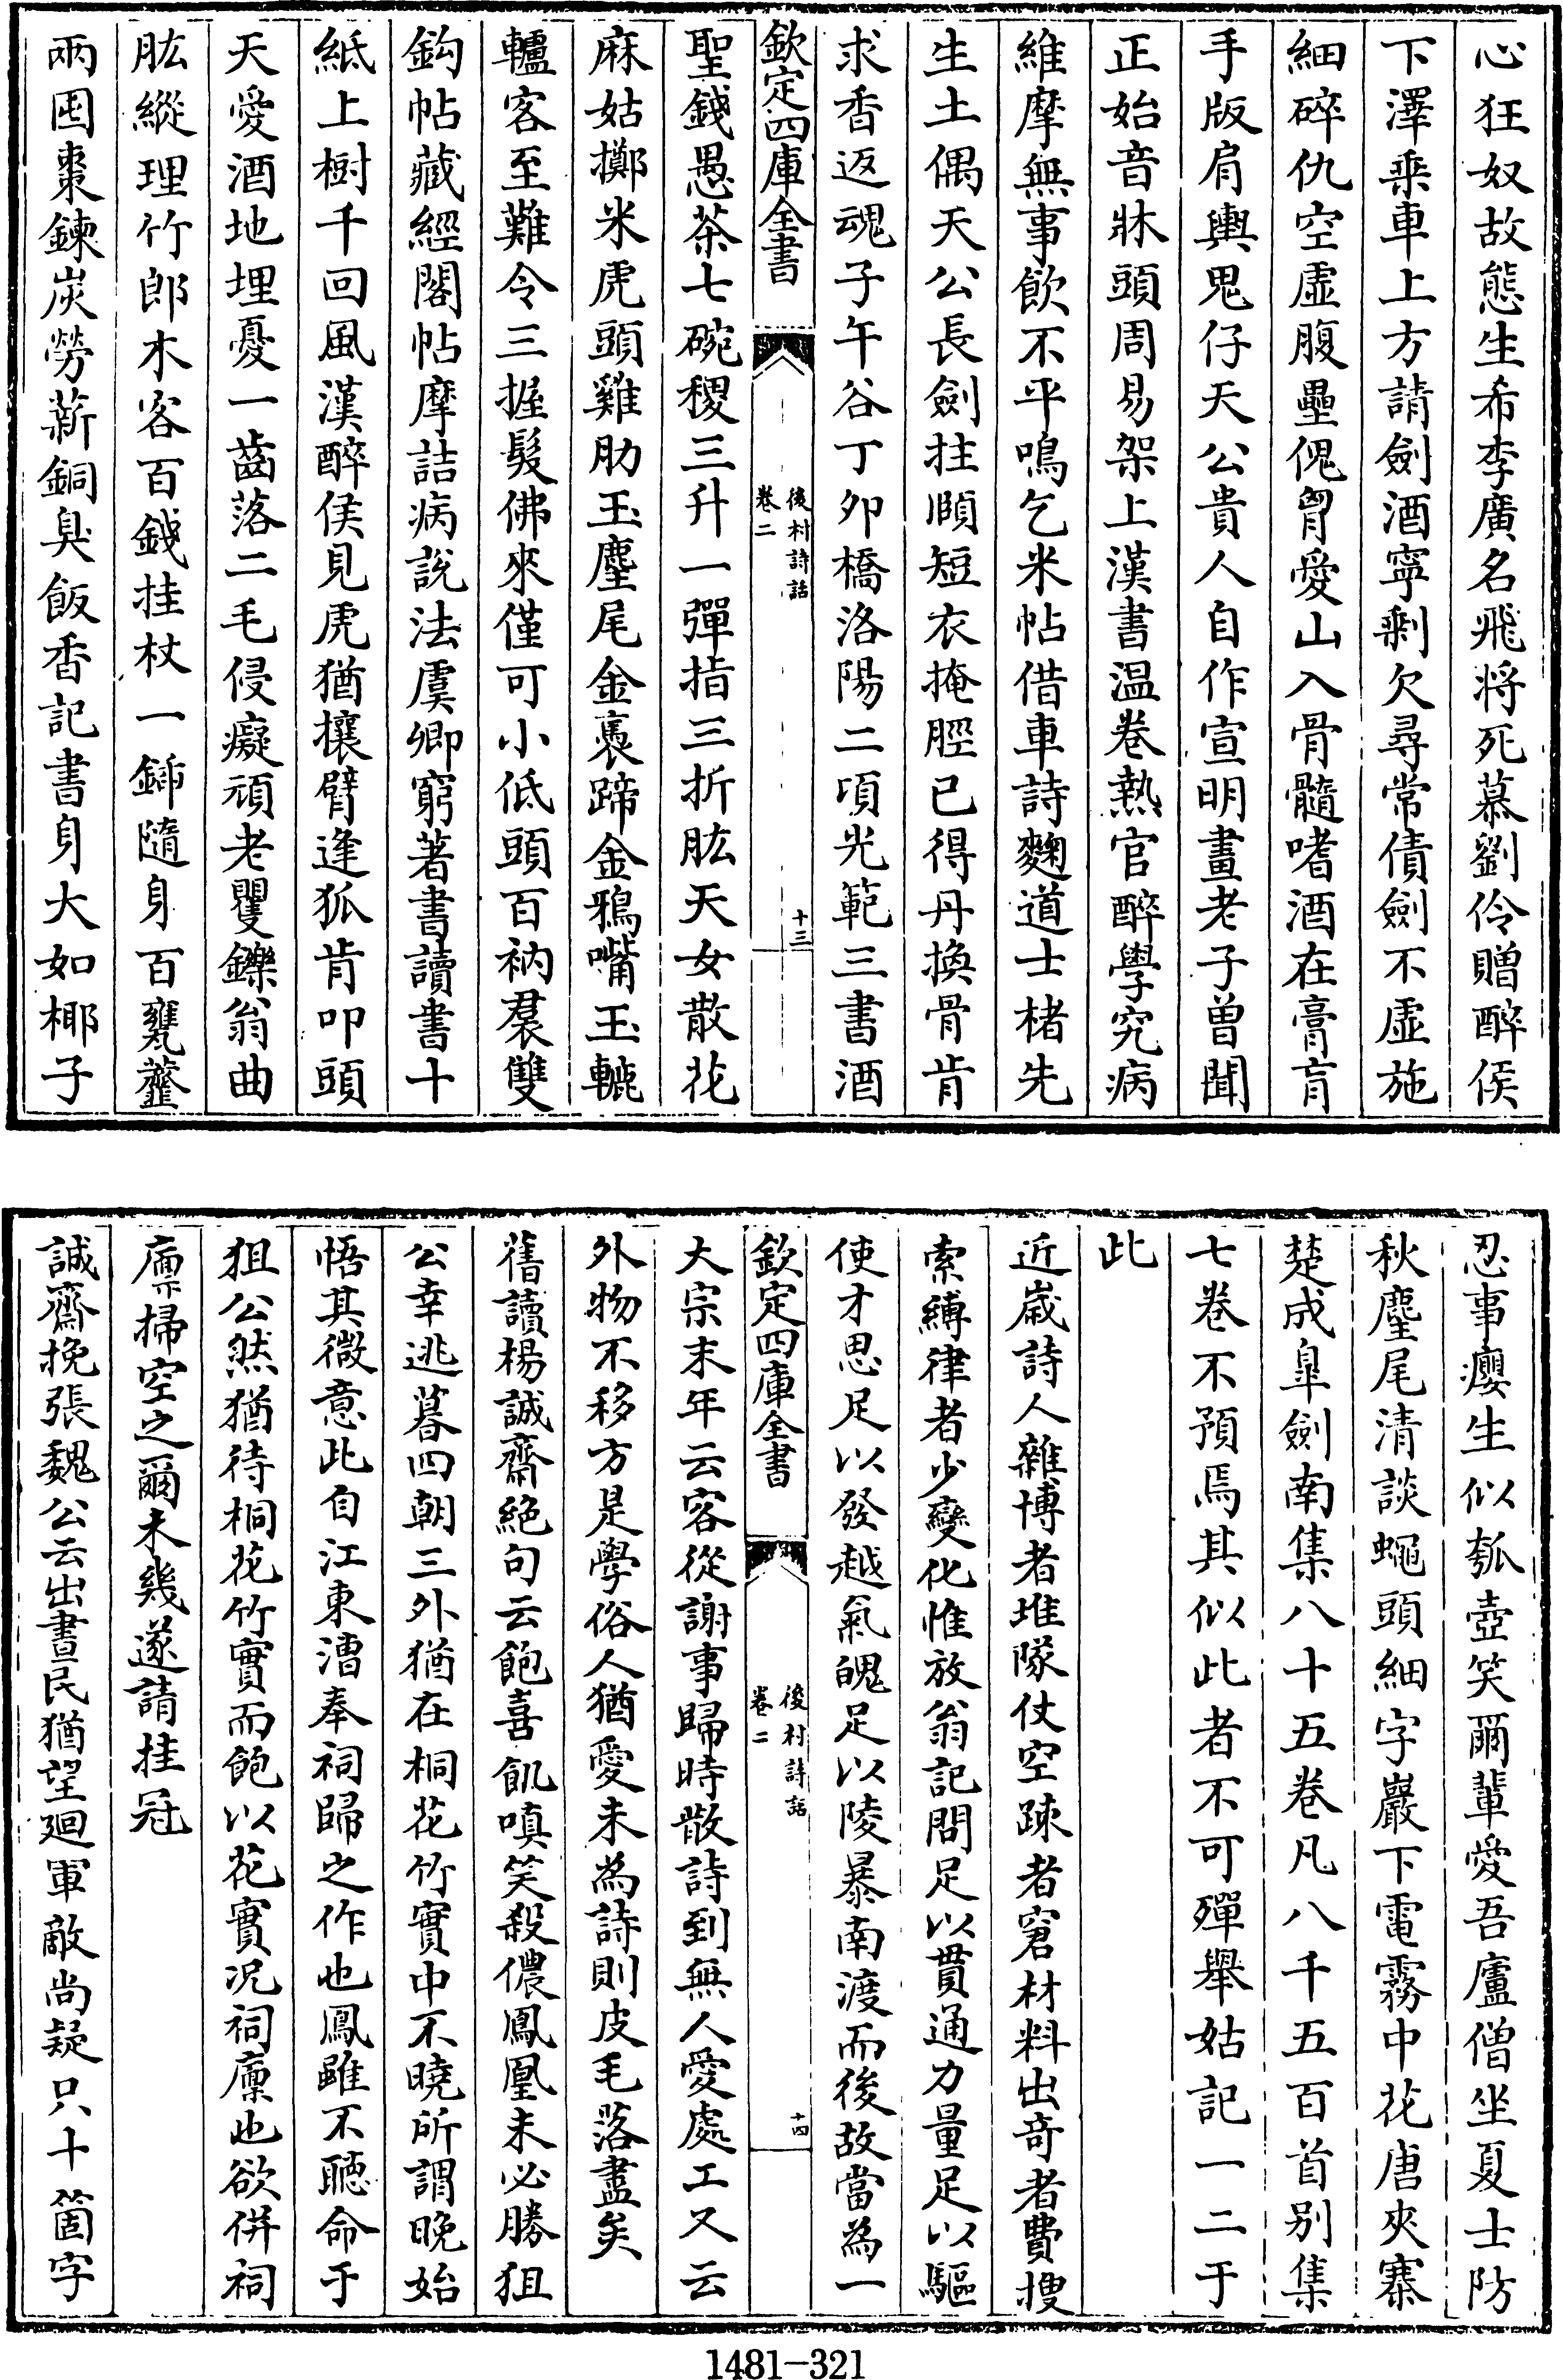 心狂奴故態生希李廣名飛將死慕劉伶贈醉侯
下澤乘車上方請劍酒寧剩欠尋常債劍不虛施
細碎仇空虛腹壘傀胷愛山入骨髓嗜酒在膏肓
手版肩輿鬼仔天公貴人自作宣明畫老子曾聞
正始音牀頭周易架上漢書温卷熱官醉學究病
維摩無事飲不平鳴乞米帖借車詩麴道士楮先
生土偶天公長劍拄頤短衣掩脛已得丹換骨肯
求香返魂子午谷丁卯橋洛陽二頃光範三書酒
欽定四庫全書
後村詩話
卷二
十三
聖錢愚茶七碗稷三升一彈指三折肱天女散花
麻姑擲米虎頭雞肋玉麈尾金褭蹄金鴉嘴玉轆
轤客至難令三握髮佛來僅可小低頭百衲裠雙
鈎帖藏經閣帖摩詰病說法虞卿窮著書讀書十
紙上樹千回風漢醉侯見虎猶攘臂逢狐肯叩頭
天愛酒地埋憂一齒落二毛侵癡頑老矍鑠翁曲
肱縱理竹郎木客百錢挂杖一鍤隨身百甕虀
兩囤棗鍊炭勞薪銅臭飯香記書身大如椰子
忍事癭生似瓠壺笑爾輩愛吾廬僧坐夏士防
秋麈尾清談蠅頭細字巖下電霧中花唐夾寨
楚成臯劍南集八十五卷凡八千五百首别集
七卷不預焉其似此者不可殫舉姑記一二于
此
近嵗詩人雜博者堆隊仗空疎者窘材料出奇者費搜
索縛律者少變化惟放翁記問足以貫通力量足以驅
使才思足以發越氣魄足以陵暴南渡而後故當為一
欽定四庫全書
後村詩話
卷二
十四
大宗末年云客從謝事歸時散詩到無人愛處工又云
外物不移方是學俗人猶愛未為詩則皮毛落盡矣
舊讀楊誠齋絶句云飽喜飢嗔笑殺儂鳳凰未必勝狙
公幸逃暮四朝三外猶在桐花竹實中不曉所謂晚始
悟其微意此自江東漕奉祠歸之作也鳳雖不聽命于
狙公然猶待桐花竹實而飽以花實况祠廪也欲併祠
廪掃空之爾未幾遂請挂冠
誠齋挽張魏公云出晝民猶望廻軍敵尚疑只十箇字
1481-321